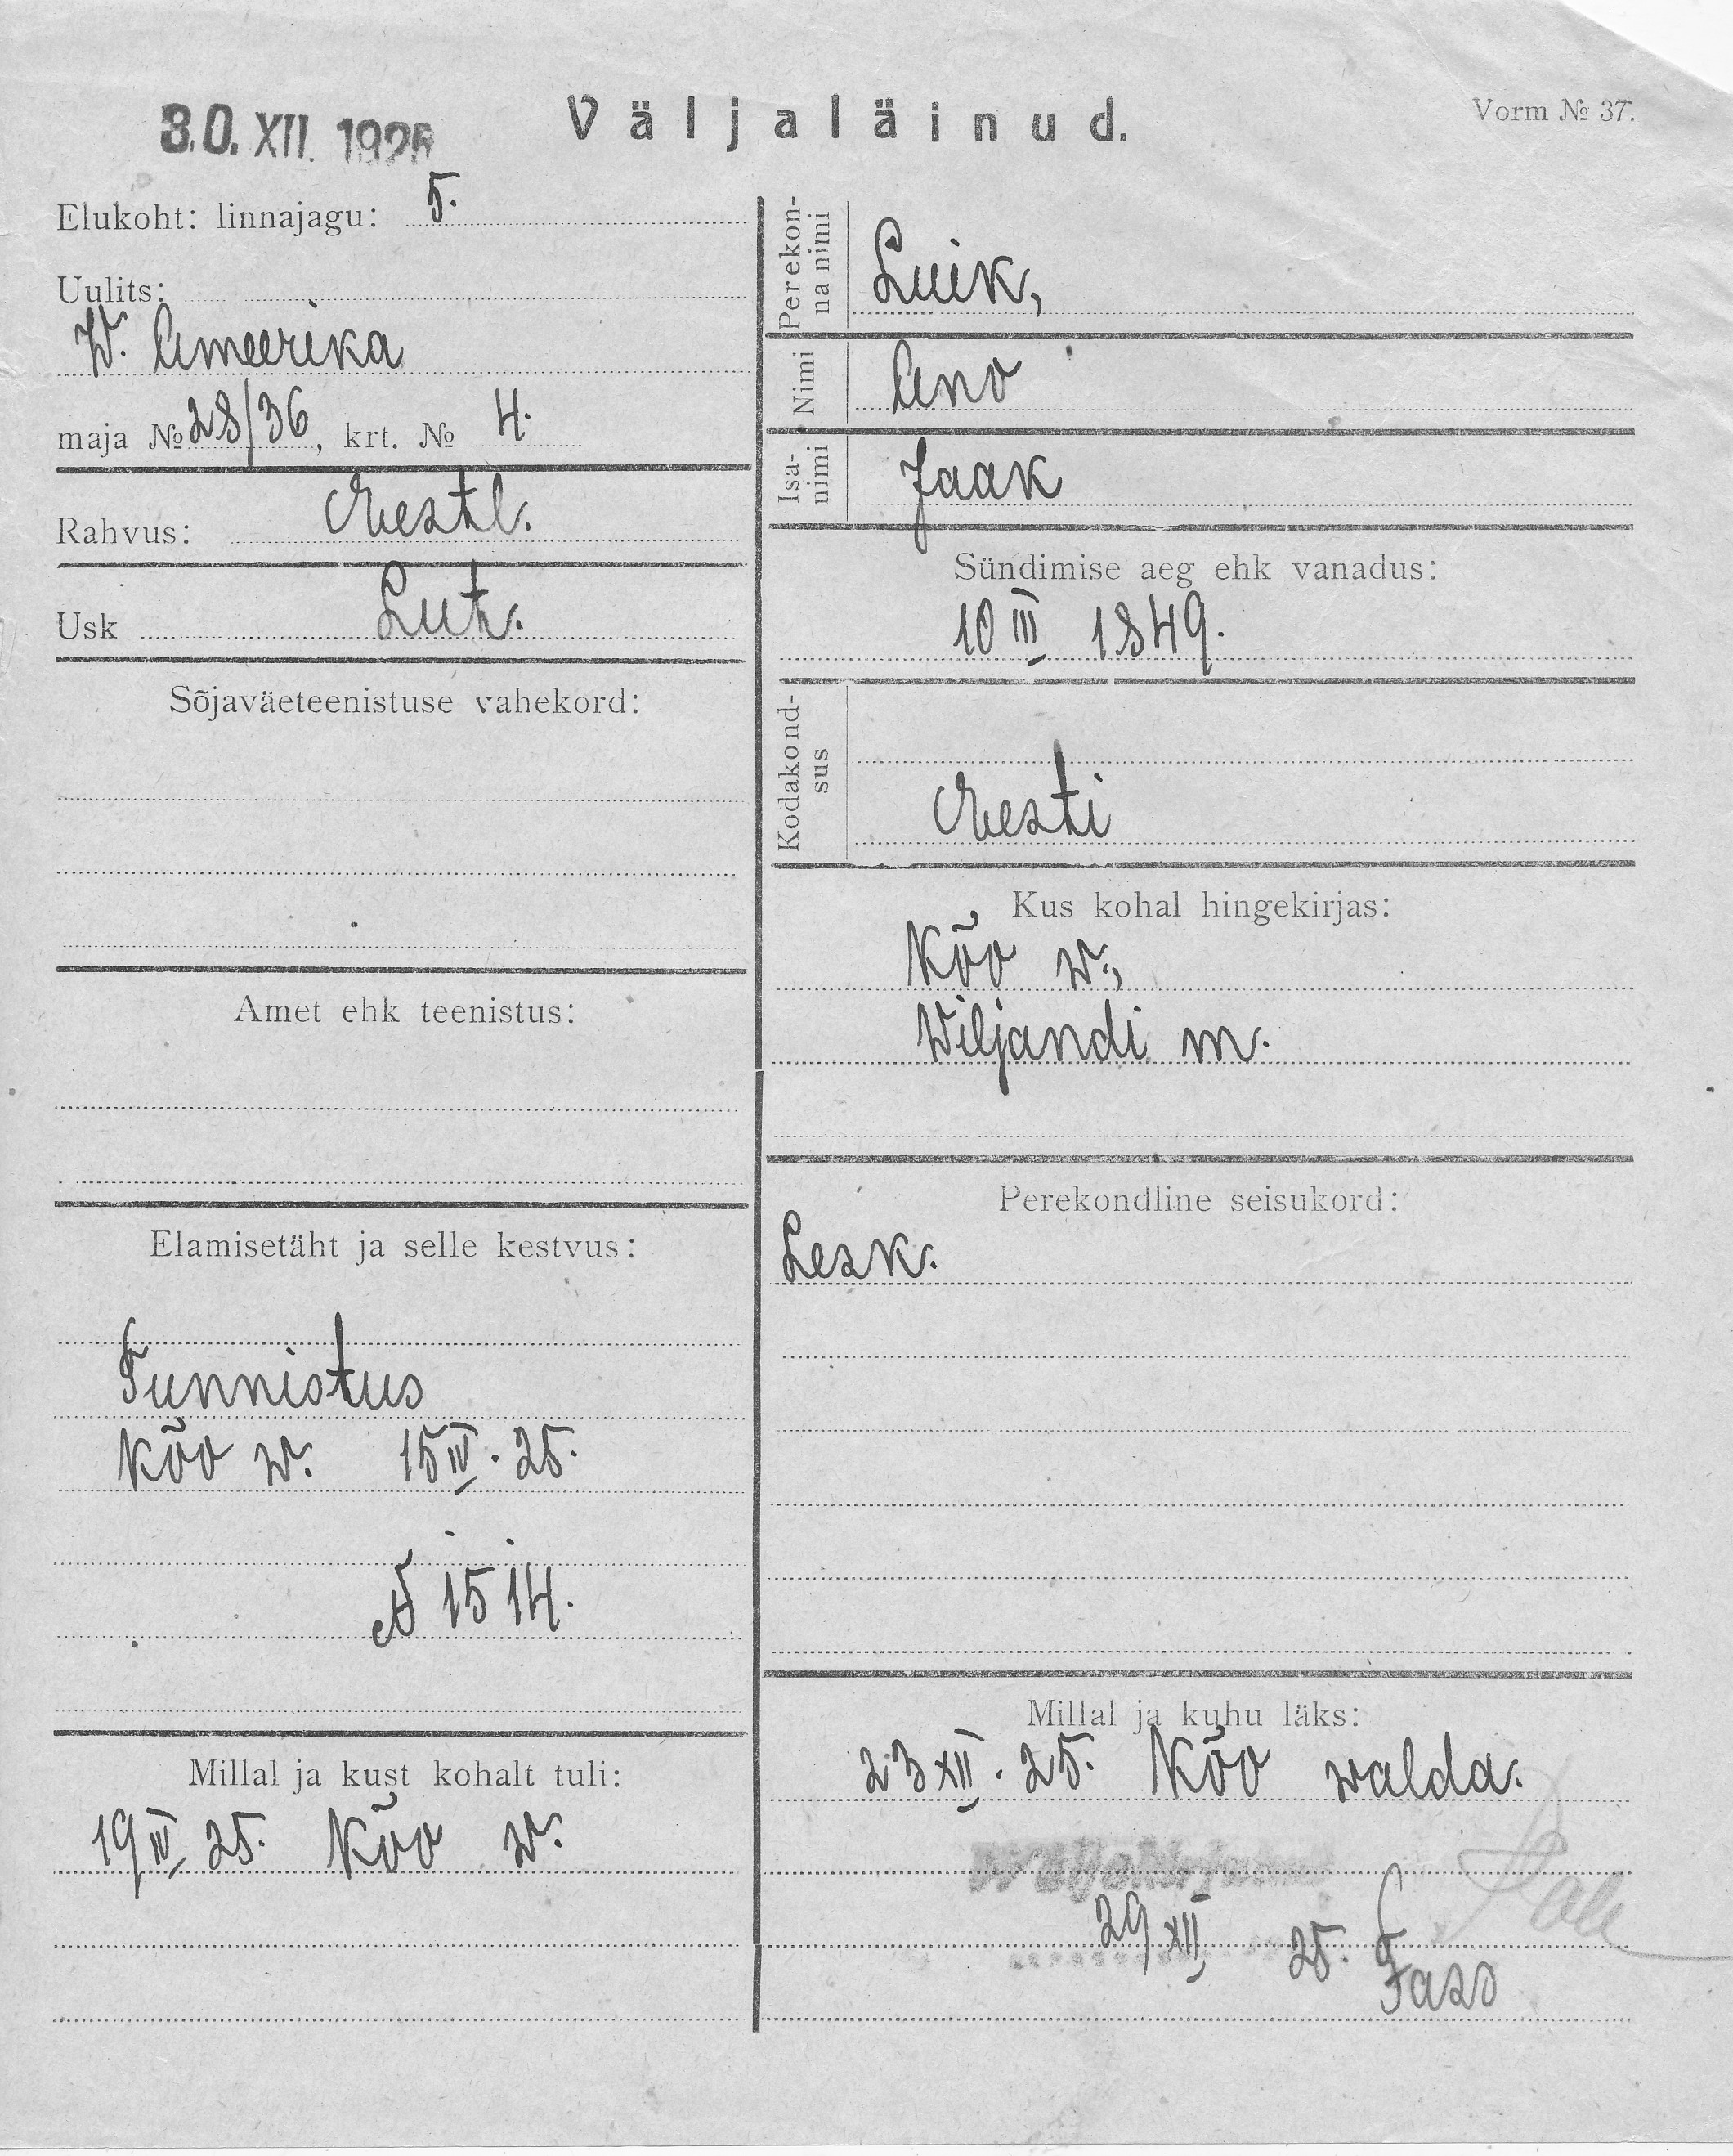 30. XII. 1925
Väljaläinud.
Vorm № 37.
Elukoht: linnajagu: 5.
Uulits:
W. Ameerika
maja № 28/36, krt. № 4.
Rahvus: Eestl.
Usk Lut.
Sõjaväeteenistuse vahekord:
Amet ehk teenistus:
Elamisetäht ja selle kestvus:
Tunnistus
Kõo w. 15 IV. 25.
№ 1514.
Millal ja kust kohalt tuli:
19 IV 25. Kõo w.
Perekon-
na nimi
Luik,
Nimi
Ano
Isa-
nimi
Jaak
Sündimise aeg ehk vanadus:
10 III 1849.
Kodakond-
sus
Eesti
Kus kohal hingekirjas:
Kõo w.,
Wiljandi m.
Perekondline seisukord:
Lesk.
Millal ja kuhu läks:
23 XII. 25. Kõo walda.
29 XII 25.